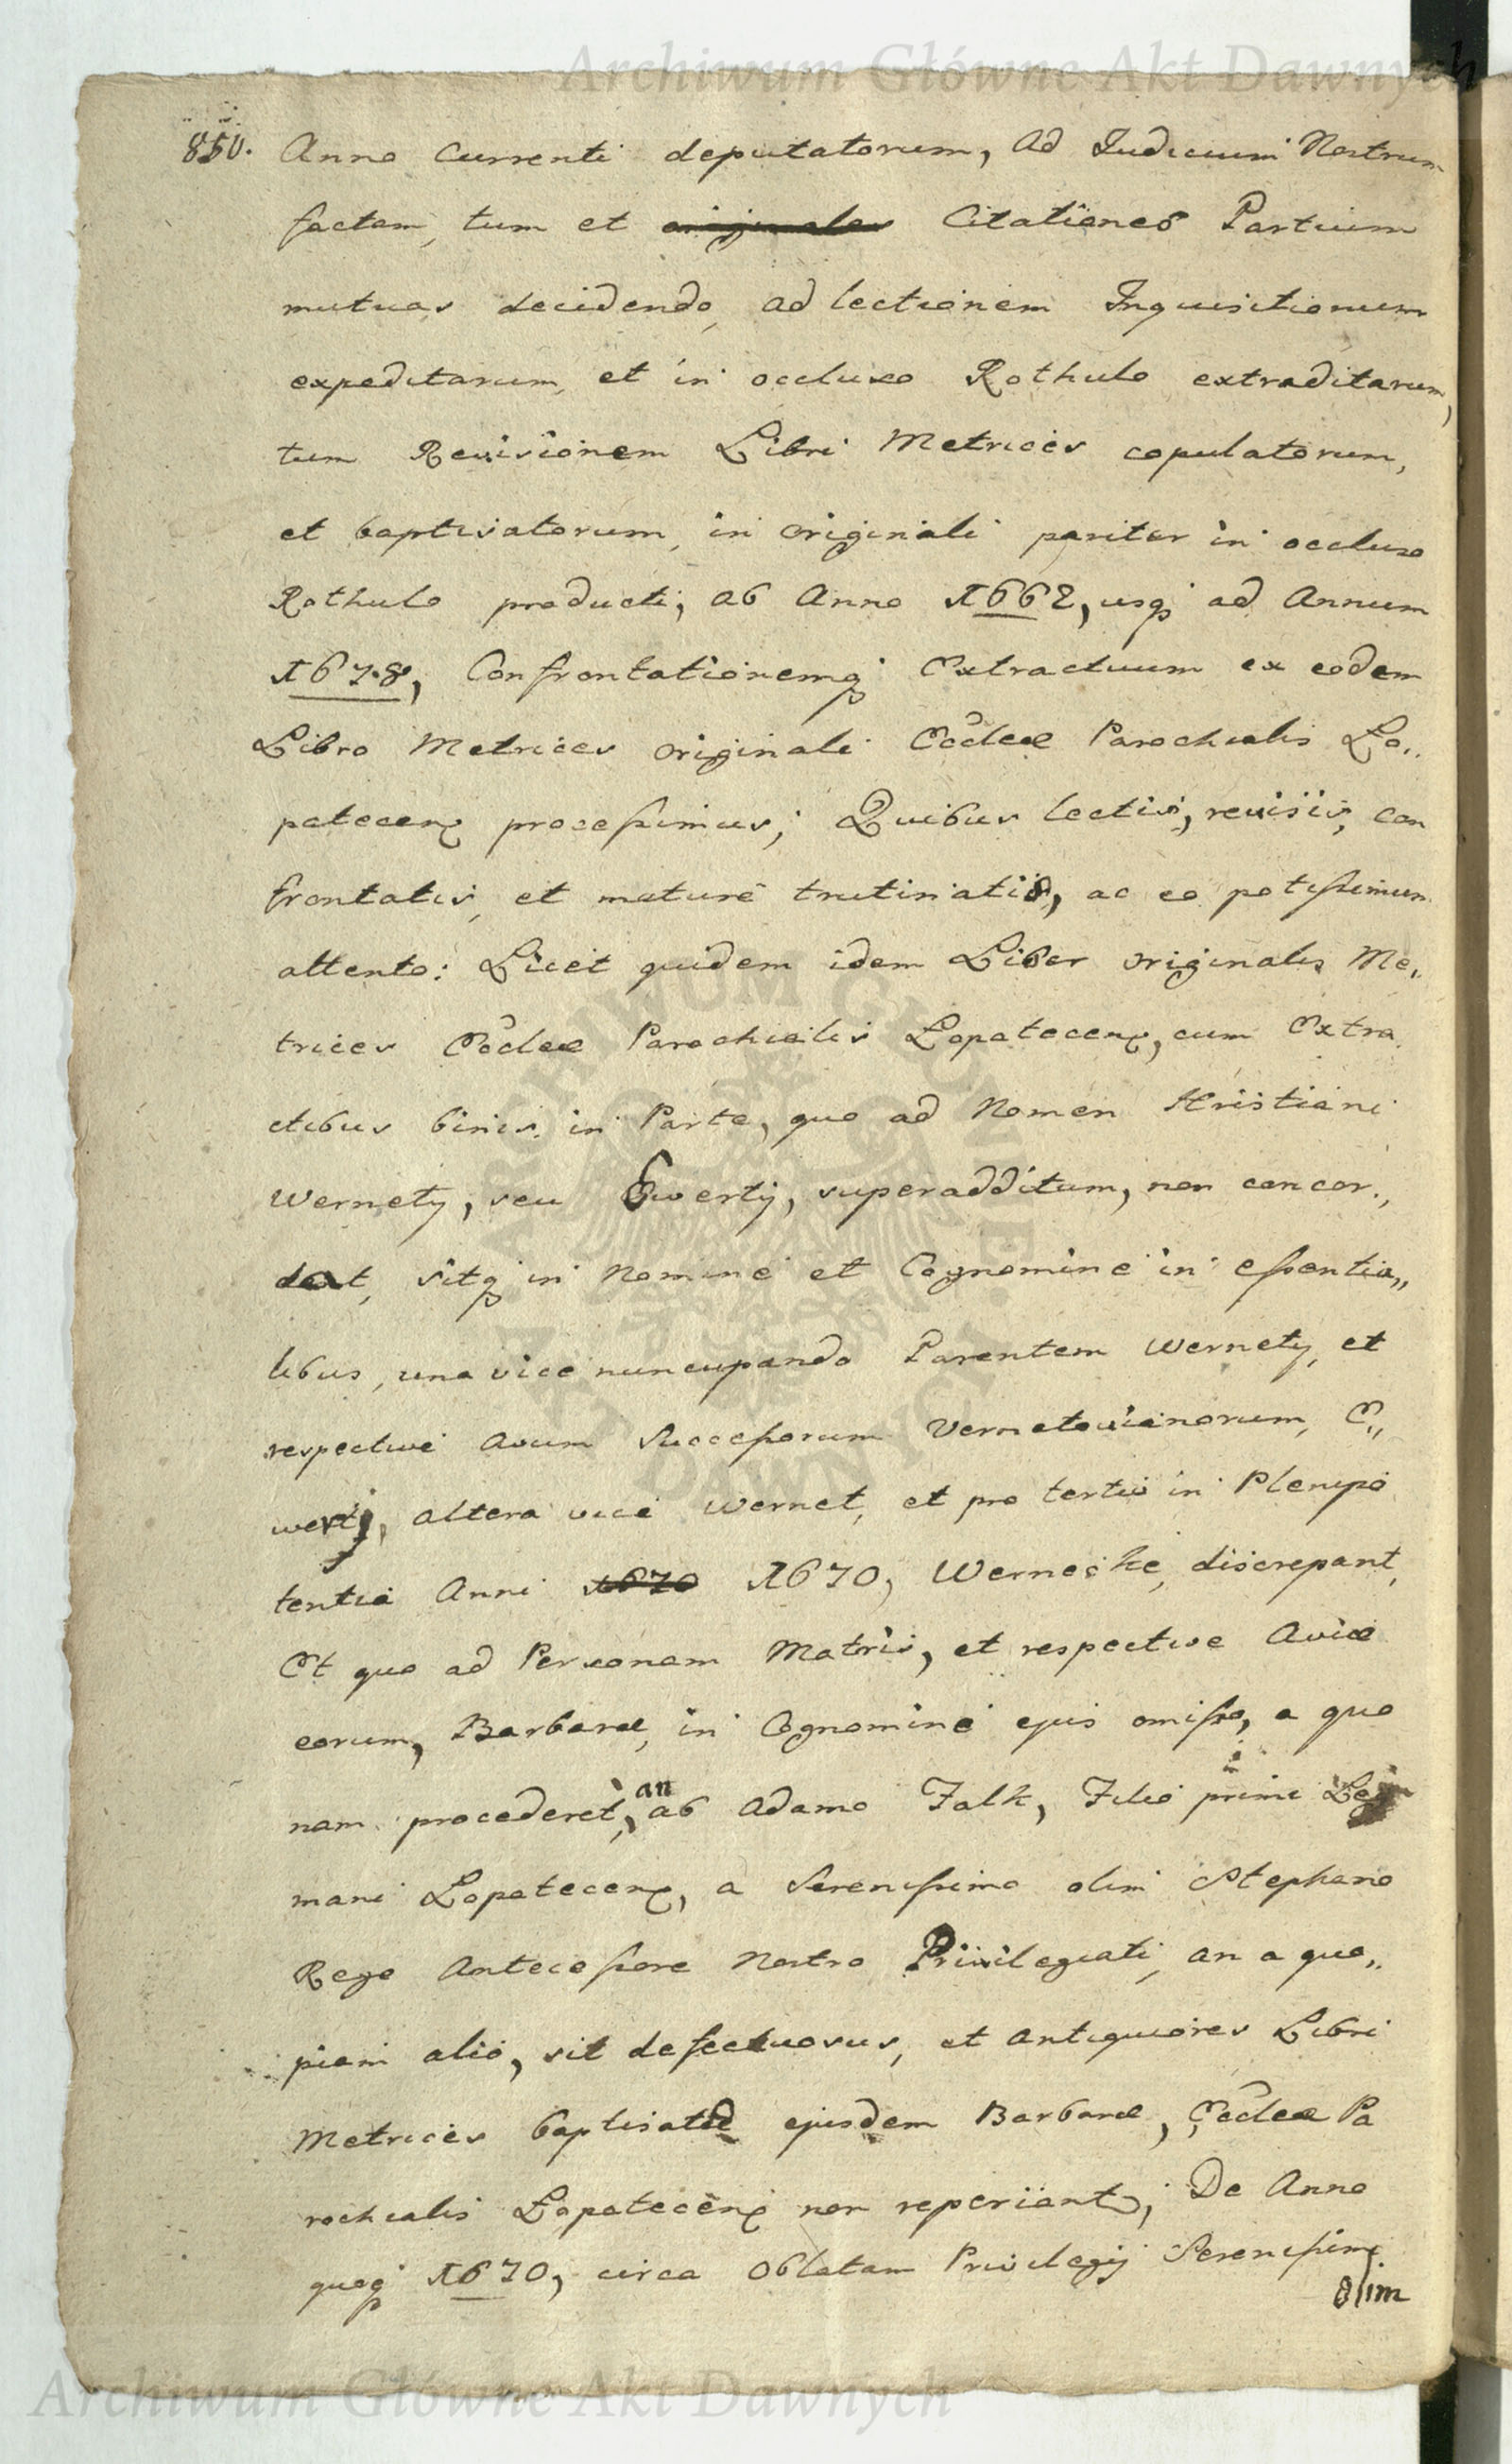 Archiwum Główne Akt Dawnych
850. Anno Currenti deputatorum, ad Judicium Nostrum
factam, tum et originales Citationes Partium
mutuas decidendo, ad lectionem Inquisitionum
expeditarum, et in occluso Rothulo extraditarum,
tum Revisionem Libri Metrices copulatorum,
et baptisatorum, in Originali pariter in occluso
Rothulo producti, ab Anno 1662, usq ad Annum
1678, Confrontationemq Extractuum ex eodem
Libro Metrices Originali Eccleae Parochialis Lo,,
patecens processimus; Quibus lectis, revisis, con
frontatis, et maturè trutinatis, ac eo potissimum
attento: Licet quidem idem Liber Originalis Me,,
trices Eccleae Parochialis Lopatecens, cum Extra
ctibus binis in Parte, quo ad Nomen Khristiani
Wernety, seu Ewerty, superadditum, non concor,,
dat, sitq in Nomine et Cognomine in essentia,,
libus, una vice nuncupando Parentem Wernety, et
respective Avum Successorum Vernetovianorum, E,,
werty, altera vice Wernet, et pro tertio in Plenipo
tentia Anni 1670 1670, Werneske, discrepant,
Et quo ad Personam Matris, et respective Aviae
eorum, Barbarae, in Cognomine ejus omisso, a quo
nam procederet, an ab Adamo Falk, Filio primi Leg
mani Lopatecens, a Serenissimo olim Stephano
Rege Antecessore Nostro Privilegiati, an a quo,,
piam alio, sit defectuosus, et antiquiores Libri
Metrices baptisatae ejusdem Barbarae, Eccleae Pa
rochialis Lopatecens non reperiant; De Anno
quoq 1670, circa Oblatam Privilegij Serenissimi
olim
Archiwum Główne Akt Dawnych